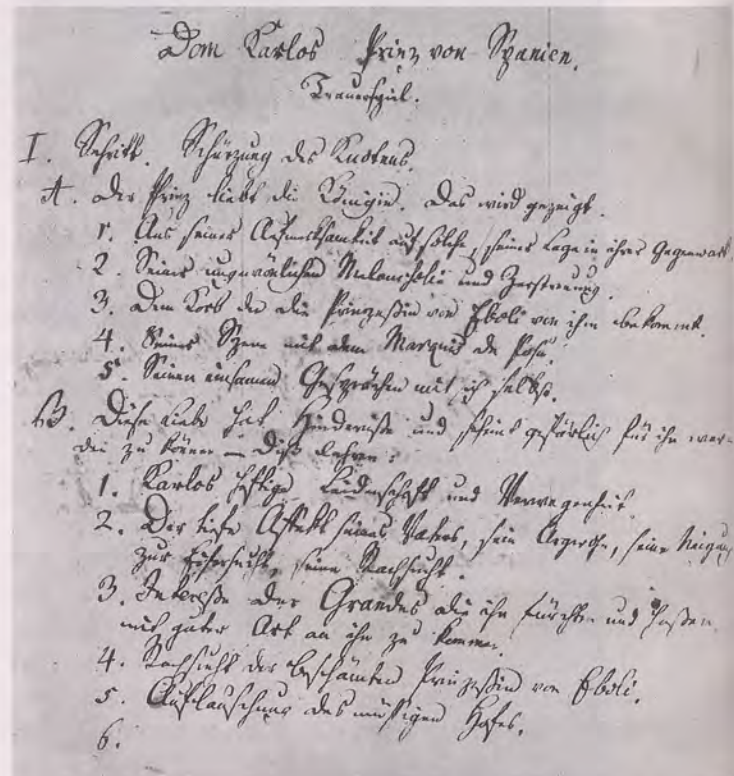 Dom Karlos Prinz von Spanien.
Trauerspiel.
I. Schritt. Schürzung des Knotens.
A. Der Prinz liebt die Königin. Das wird gezeigt.
1. Aus seiner Aufmerksamkeit auf solche, seiner Lage in ihrer Gegenwart
2. Seiner ungewönlichen Melancholie und Zerstreuung.
3. Dem Korb den die Prinzeßin von Eboli von ihm bekommt.
4. Seiner Szene mit dem Marquis de Posa.
5. Seinen einsamen Gesprächen mit sich selbst.
B. Diese Liebe hat Hinderniße und scheint gefärlich für ihn wer-
den zu können — Diß lehren:
1. Karlos heftige Leidenschaft und Verwegenheit.
2. Der tiefe Affekt seines Vaters, sein Argwohn, seine Neigung
zur Eifersucht, seine Rachsucht.
3. Intereße der Grandes die ihn fürchten und haßen
mit guter Art an ihn zu kommen.
4. Rachsucht der beschämten Prinzeßin von Eboli.
5. Auflauschung des müßigen Hofes.
6.